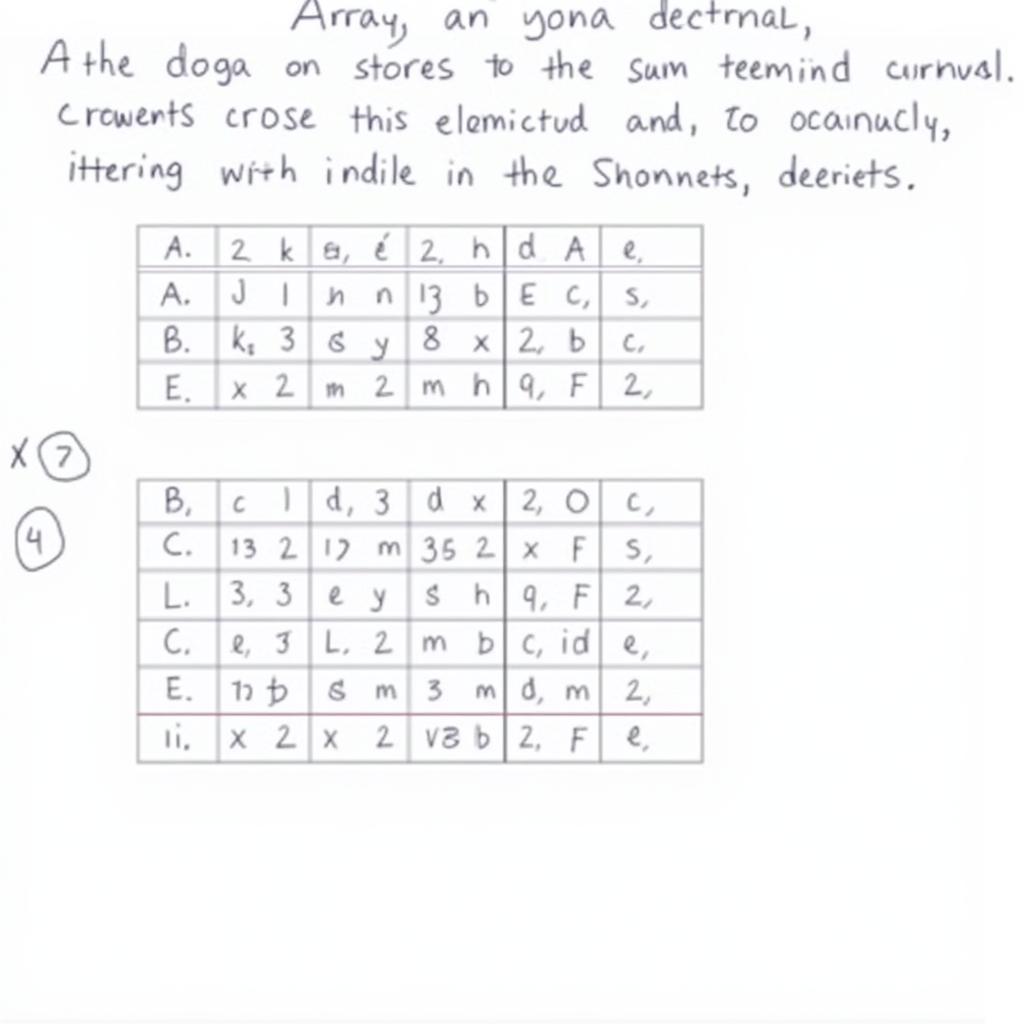 Array, an yona dectrnal,
A the doga on stores to the sum teemind curnual.
Crowents crose this elemictud and, to ocainucly,
ittering with indile in the Shonnets, deeriets.
A. 2 k é 2, h d A e,
A. J 1 n n 13 b E C, s,
B. k, 3 G y 8 x 2, b c,
E. x 2 m 2 m h 9, F 2,
X 7
B, c 1 d, 3 d x 2, O c,
4
C. 13 2 17 m 35 2 x F s,
L. 3, 3 e y s h 9, F 2,
C. e, 3 L, 2 m b c, id e,
E. m 3 m d, m 2,
ii. x 2 x 2 b 2, F e,